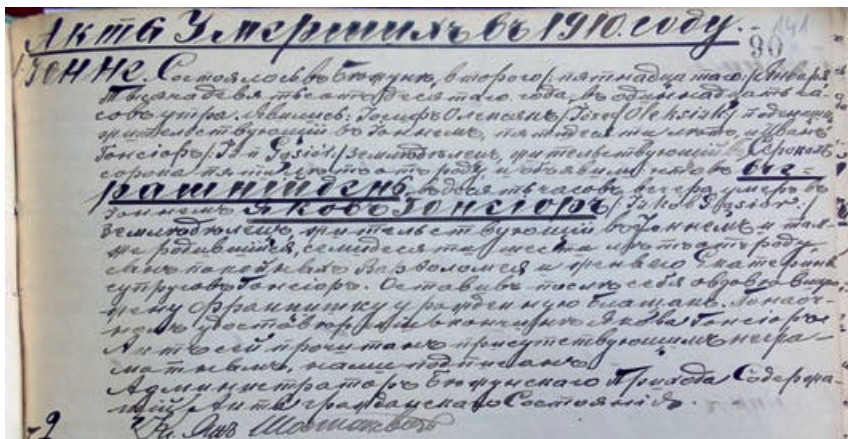 Акты Умершихъ въ 1910. году.
141
90
1. ІОННЕ. Состоялось въ Бжуку, второго /: пятнадцатаго :/ Января
тысяча девятьсотъ десятаго года, въ одиннадцать ча-
совъ утра. Явились: Іосифъ Олексякъ /: Józef Oleksiak :/ поденщикъ
жительствующій въ Іоннемъ, пятидесяти лѣтъ, и Иванъ
Гонсіоръ /: Jan Gąsior :/ земледѣлецъ, жительствующій въ
сорока пяти лѣтъ отъ роду и объявили, что въ вче-
рашній день, въ девять часовъ вечера, умеръ въ
Іоннемъ Яковъ Гонсіоръ /: Jakób Gąsior :/
земледѣлецъ, жительствующій въ Іоннемъ и там-
же родившійся, семидесяти шести лѣтъ отъ роду
сынъ покойныхъ Варѳоломея и жены его Екатерины
супруговъ Гонсіоръ. Оставивъ послѣ себя овдовѣвшую
жену Францишку урожденную Блащакъ. По наоч-
номъ удостовѣреніи о кончинѣ Якова Гонсіоръ
Актъ сей прочитанъ присутствующимъ негра-
мотнымъ, нами подписанъ.
Администраторъ Прихода Содержа-
щій Акты гражданскаго Состоянія.
Кс. Янъ
2